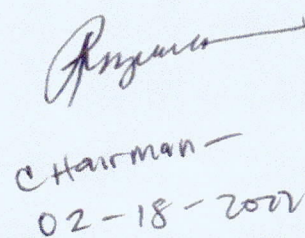 CHairman-
02-18-2022